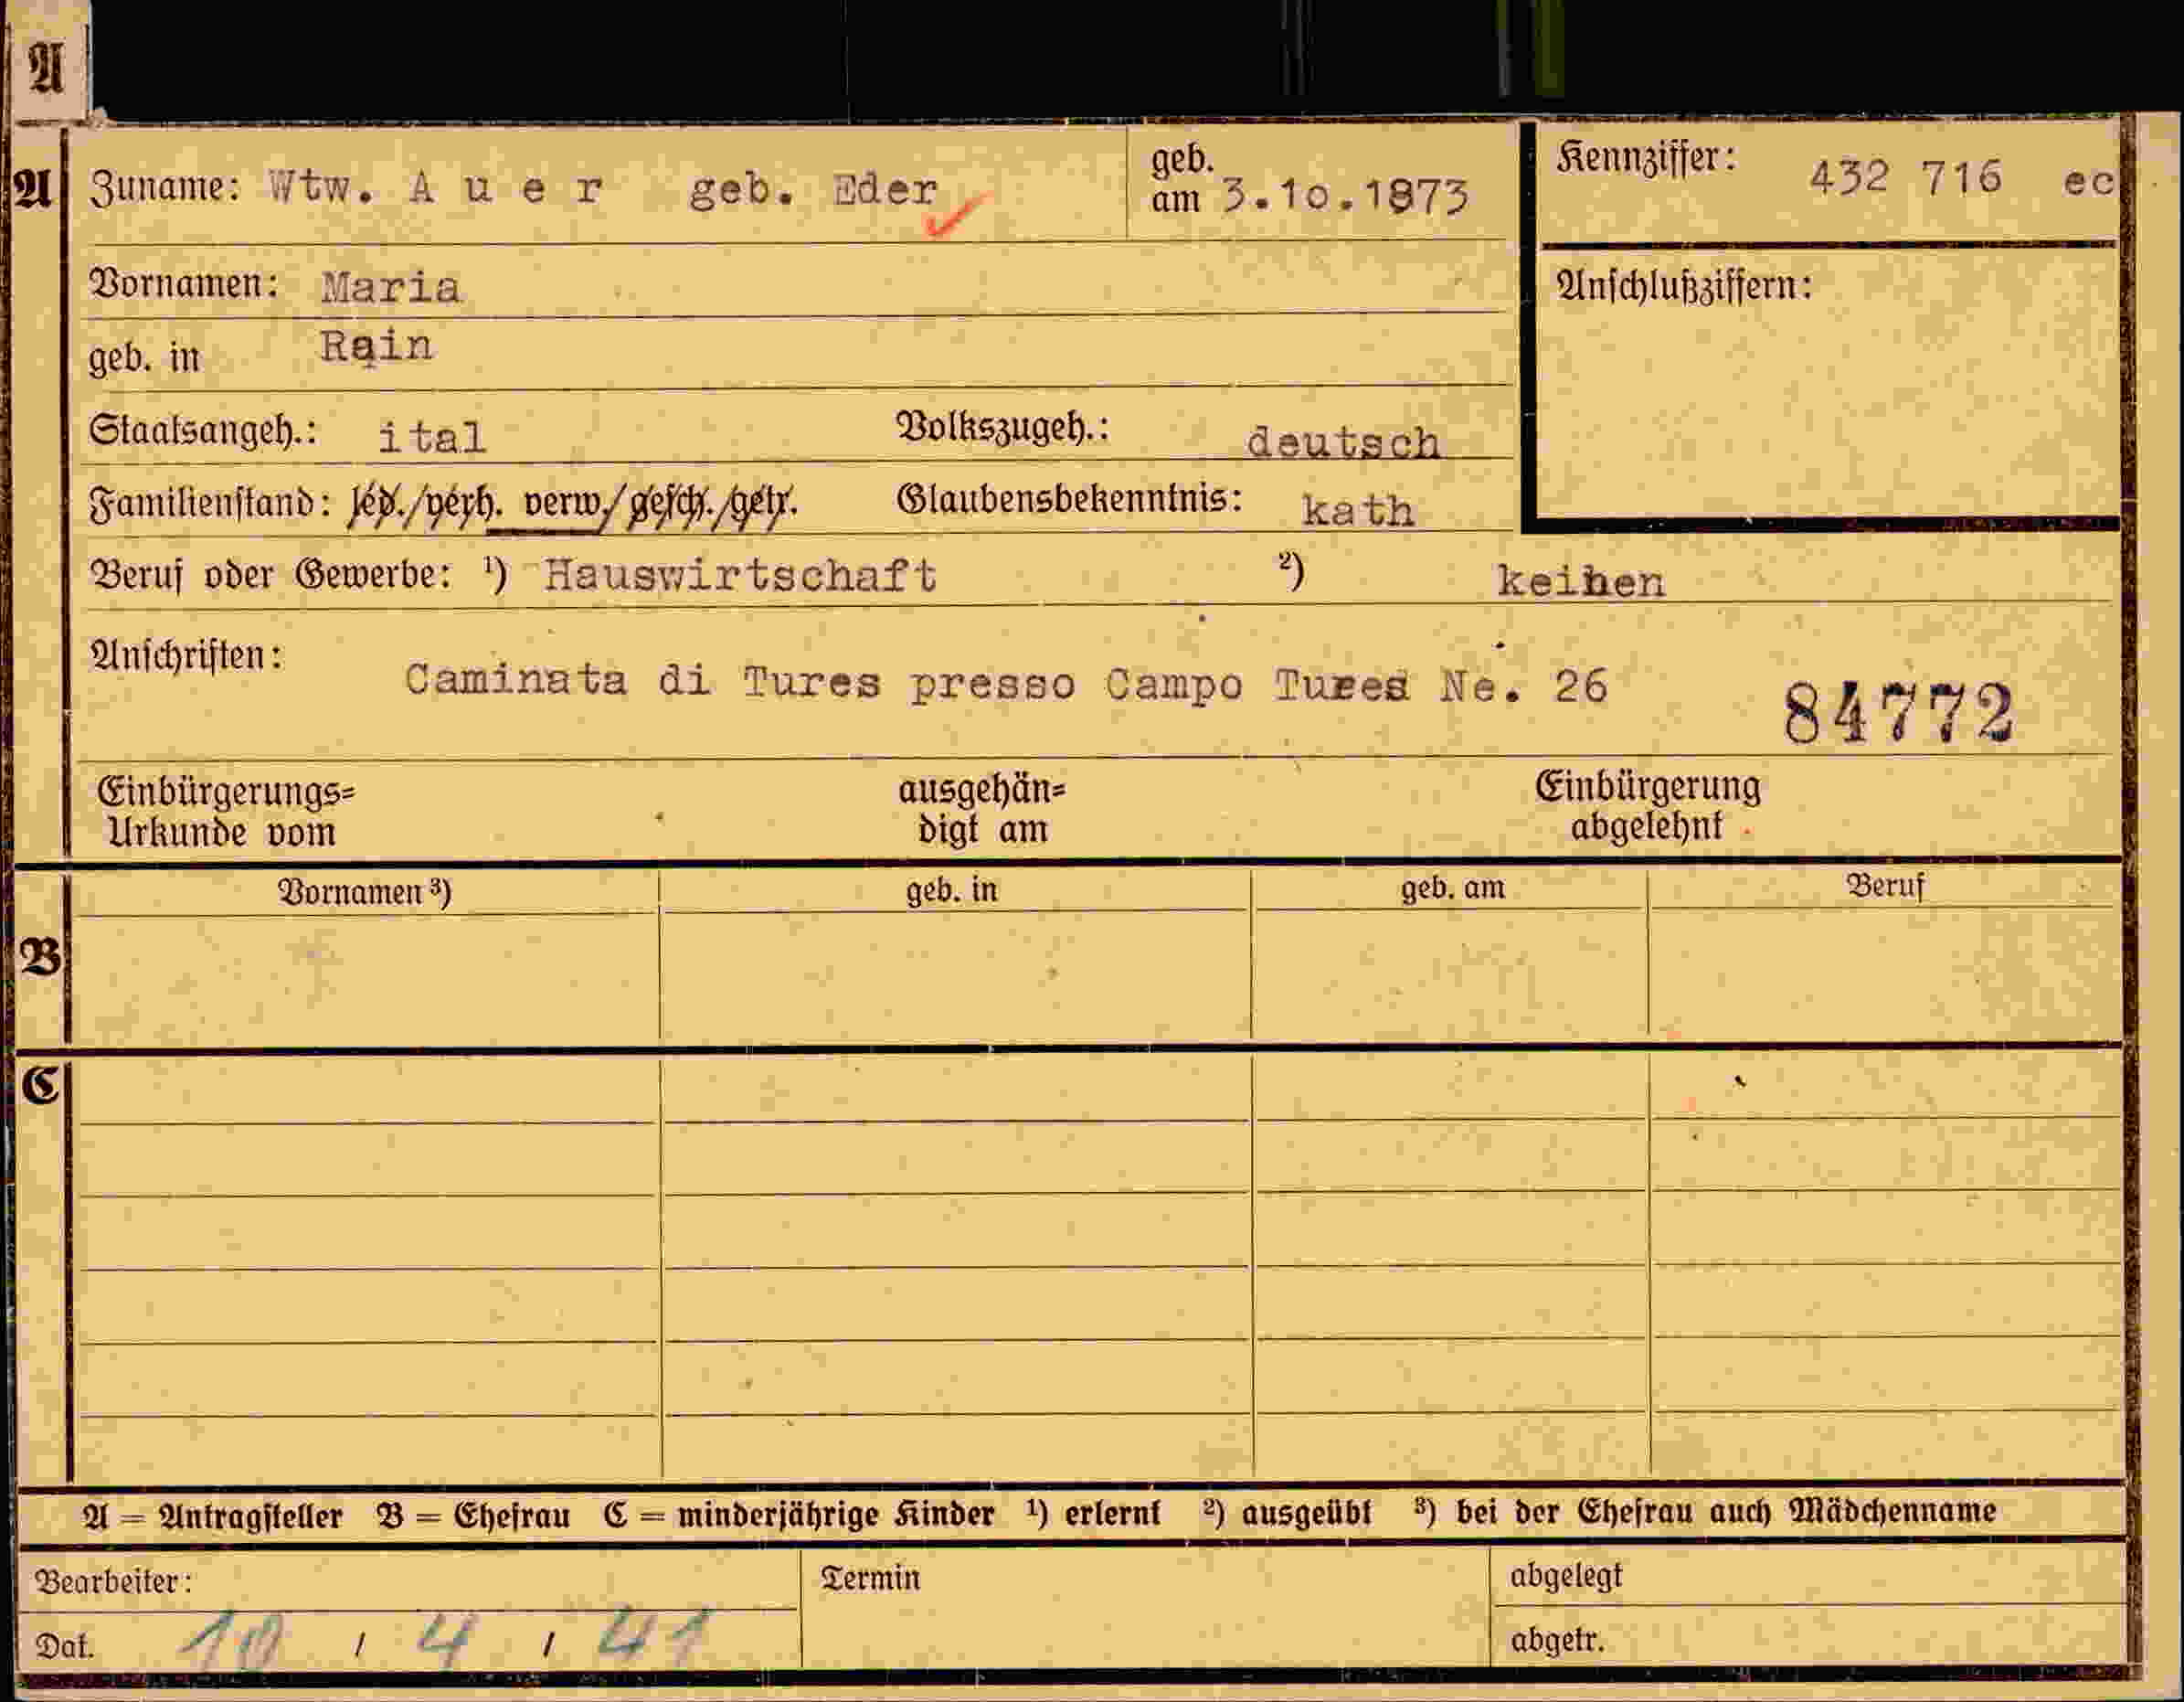 A
A Zuname: Wtw. A u e r geb. Eder geb. am 3.10.1873 Kennziffer: 432 716 ec
Vornamen: Maria Anschlußziffern:
geb. in Rain
Staatsangeh.: ital Volkszugeh.: deutsch
Familienstand: led./verh. verw./gesch./getr. Glaubensbekenntnis: kath
Beruf oder Gewerbe: ¹) Hauswirtschaft ²) keinen
Anschriften: Caminata di Tures presso Campo Tures Ne. 26 84772
Einbürgerungs= ausgehän= Einbürgerung
Urkunde vom digt am abgelehnt
Vornamen ³) geb. in geb. am Beruf
B
C
A = Antragsteller B = Ehefrau C = minderjährige Kinder ¹) erlernt ²) ausgeübt ³) bei der Ehefrau auch Mädchenname
Bearbeiter: Termin abgelegt
Dat. 10 / 4 / 41 abgetr.